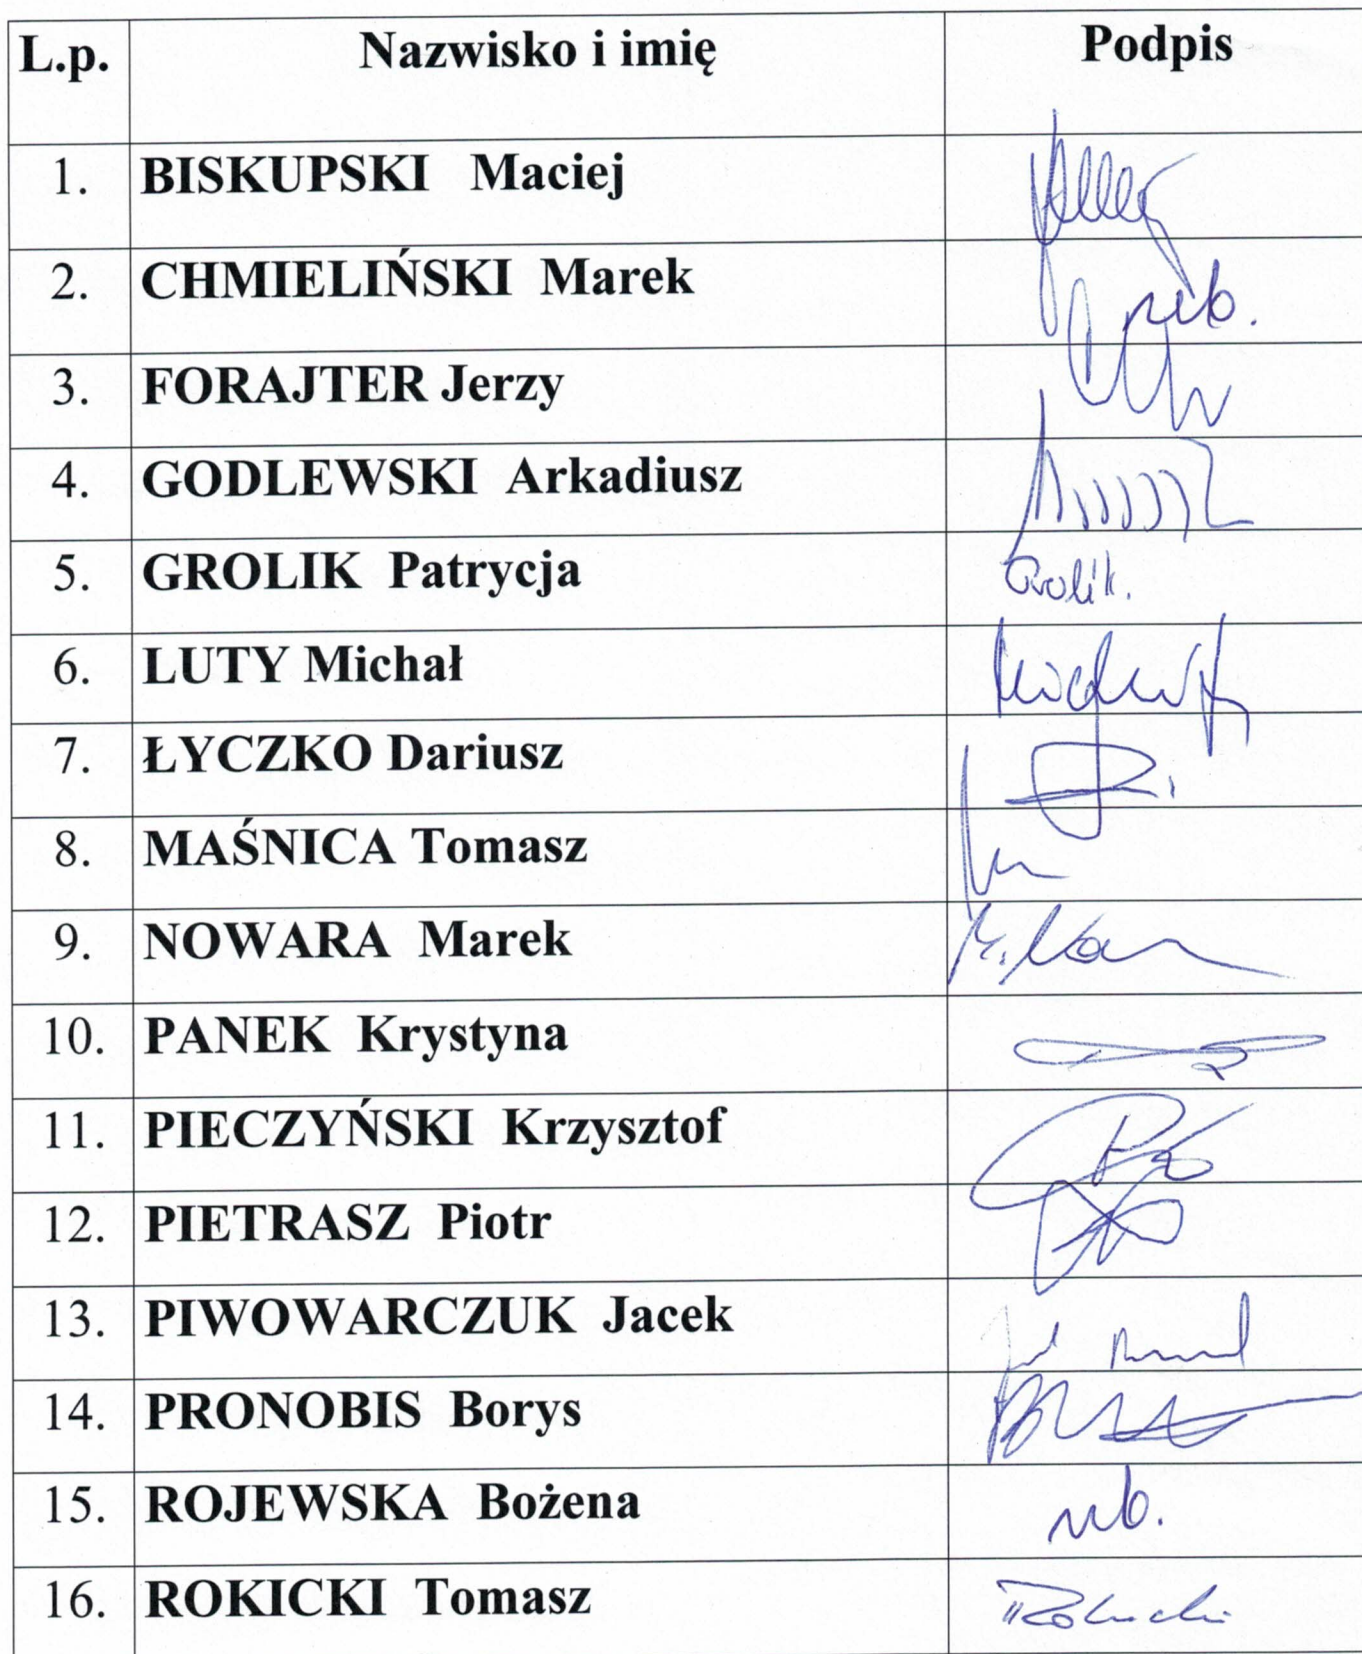 L.p. Nazwisko i imię Podpis
1. BISKUPSKI Maciej
2. CHMIELIŃSKI Marek nb.
3. FORAJTER Jerzy
4. GODLEWSKI Arkadiusz
5. GROLIK Patrycja Grolik.
6. LUTY Michał
7. ŁYCZKO Dariusz
8. MAŚNICA Tomasz
9. NOWARA Marek
10. PANEK Krystyna
11. PIECZYŃSKI Krzysztof
12. PIETRASZ Piotr
13. PIWOWARCZUK Jacek
14. PRONOBIS Borys
15. ROJEWSKA Bożena nb.
16. ROKICKI Tomasz